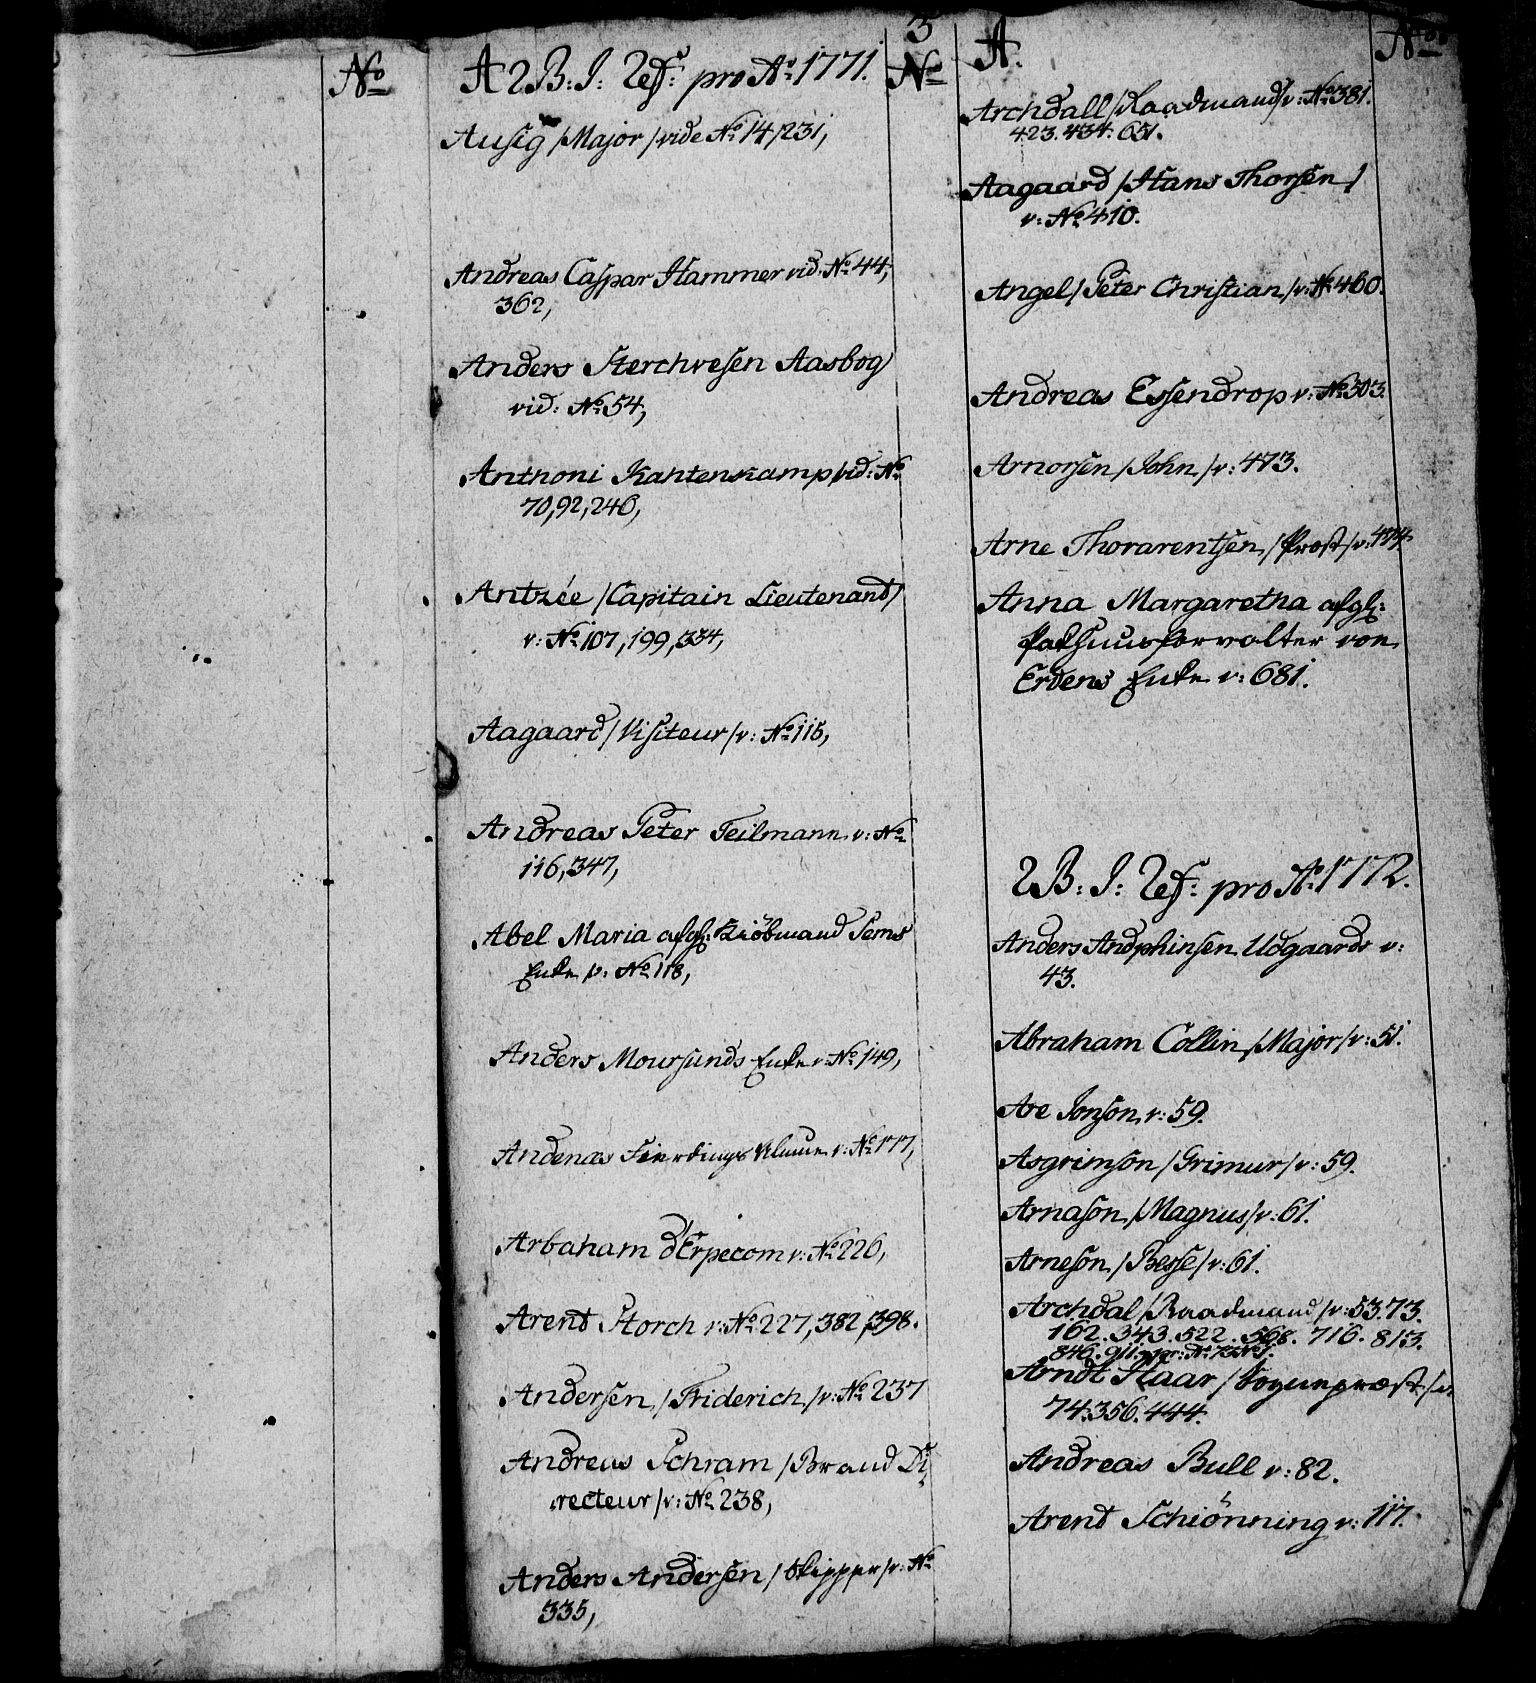 No
3
A 2 B: I: Desf: pro Ao 1771.
No
Ausig /Major/ vide No 14, 231,
Andreas Caspar Hammer vid: No 44,
362,
Anders Sterchvesen Aasbog
vid: No 54,
Anthoni Kantenkamp vid: No
70, 92, 246,
Antzée /Capitain Lieutenand/
v: No 107, 199, 334,
Aagaard /Visiteur/ v: No 115,
Andreas Peter Teilmann v: No
116, 347,
Abel Maria afgl: Kiöbmand Sems
Enke v: No 118,
Anders Moursunds Enke v: No 149,
Andenæs Fierdings Almue v: No 177,
Arbaham d'Erpecom v: No 226,
Arent Storch v: No 227, 382, 398.
Andersen /Friderich/ v: No 237
Andreas Schram /Brand Di,
recteur/ v: No 238,
Anders Andersen /Skipper/ v: No
335,
A.
No
Archdall /Raadmand/ v: No 381.
423. 434. 651.
Aagaard /Hans Thorsen/
v: No 410.
Angel /Peter Christian/ v: No 460.
Andreas Essendrop v: No 503.
Arnorsen /John/ v: 473.
Arne Thorarentsen /Prost/ v: 474
Anna Margaretha afgl:
Pakhuusforvalter von
Erdens Enke v: 681.
2 B: I: Desf: pro Ao 1772.
Anders Udgaards v:
43.
Abraham Collin /Major/ v: 51.
Are Jonson v: 59.
Asgrimson /Grimur/ v: 59.
Arnason /Magnus/ v: 61.
Arneson /Besse/ v: 61.
Archdal /Raadmand/ v: 53. 73.
162. 343. 522. 568. 716. 813.
846. 911.
Arndt Haar /Sognepræst/ v:
74. 356. 444.
Andreas Bull v: 82.
Arent Schiönning v: 117.